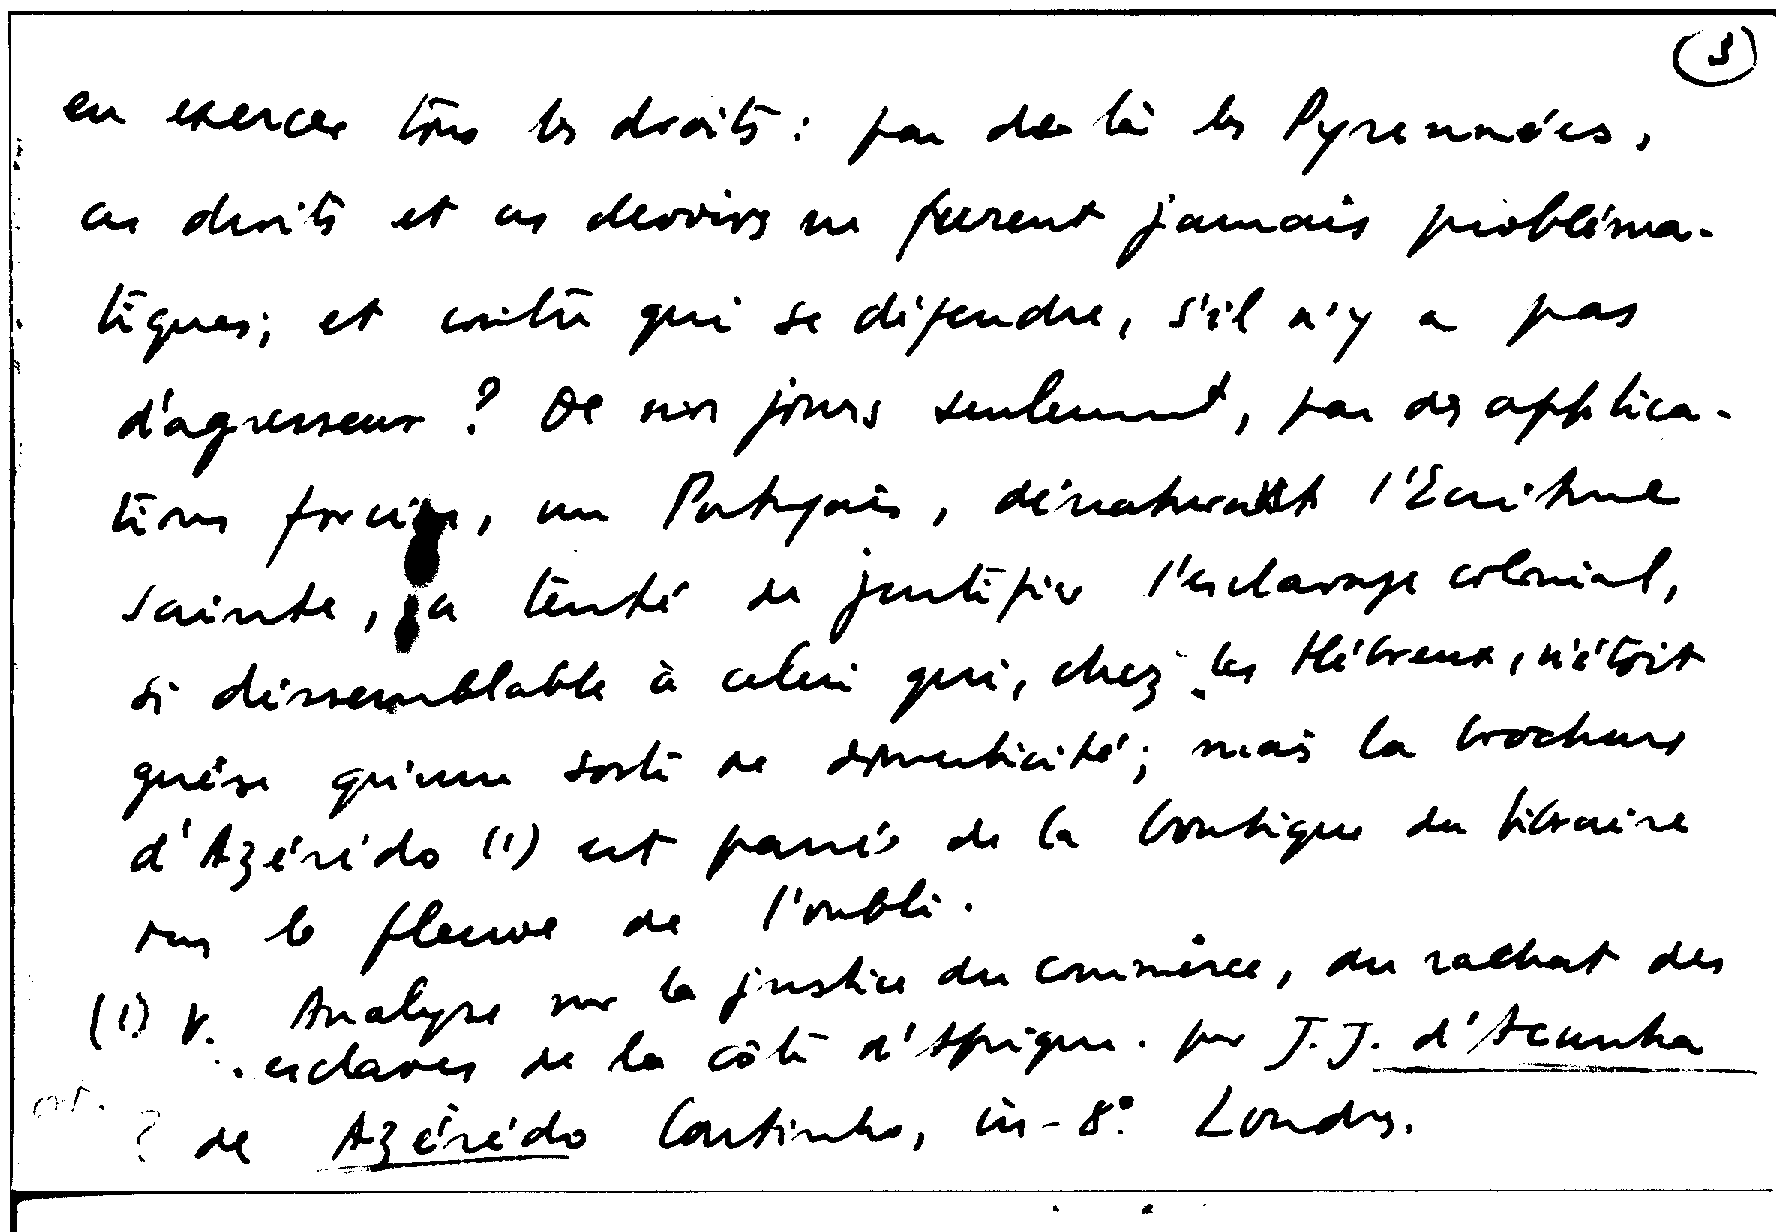 3
en exercer tous les droits : par de là les Pyrennées,
ces droits et ces devoirs ne furent jamais probléma-
tiques ; et contre qui se défendre, s'il n'y a pas
d'agresseur ? De nos jours seulement, par des applica-
tions forcées, un Portugais, dénaturant l'Ecriture
Sainte, a tenté de justifier l'esclavage colonial,
si dissemblable à celui qui, chez les Hébreux, n'étoit
guère qu'une sorte de domesticité ; mais la brochure
d'Azérédo (1) est passée de la boutique du libraire
sur le fleuve de l'oubli.
(1) V. Analyse sur la justice du commerce, du rachat des
esclaves de la côte d'Afrique. par J. J. d'Acunha
? de Azérédo Coutinho, in-8° Londres.